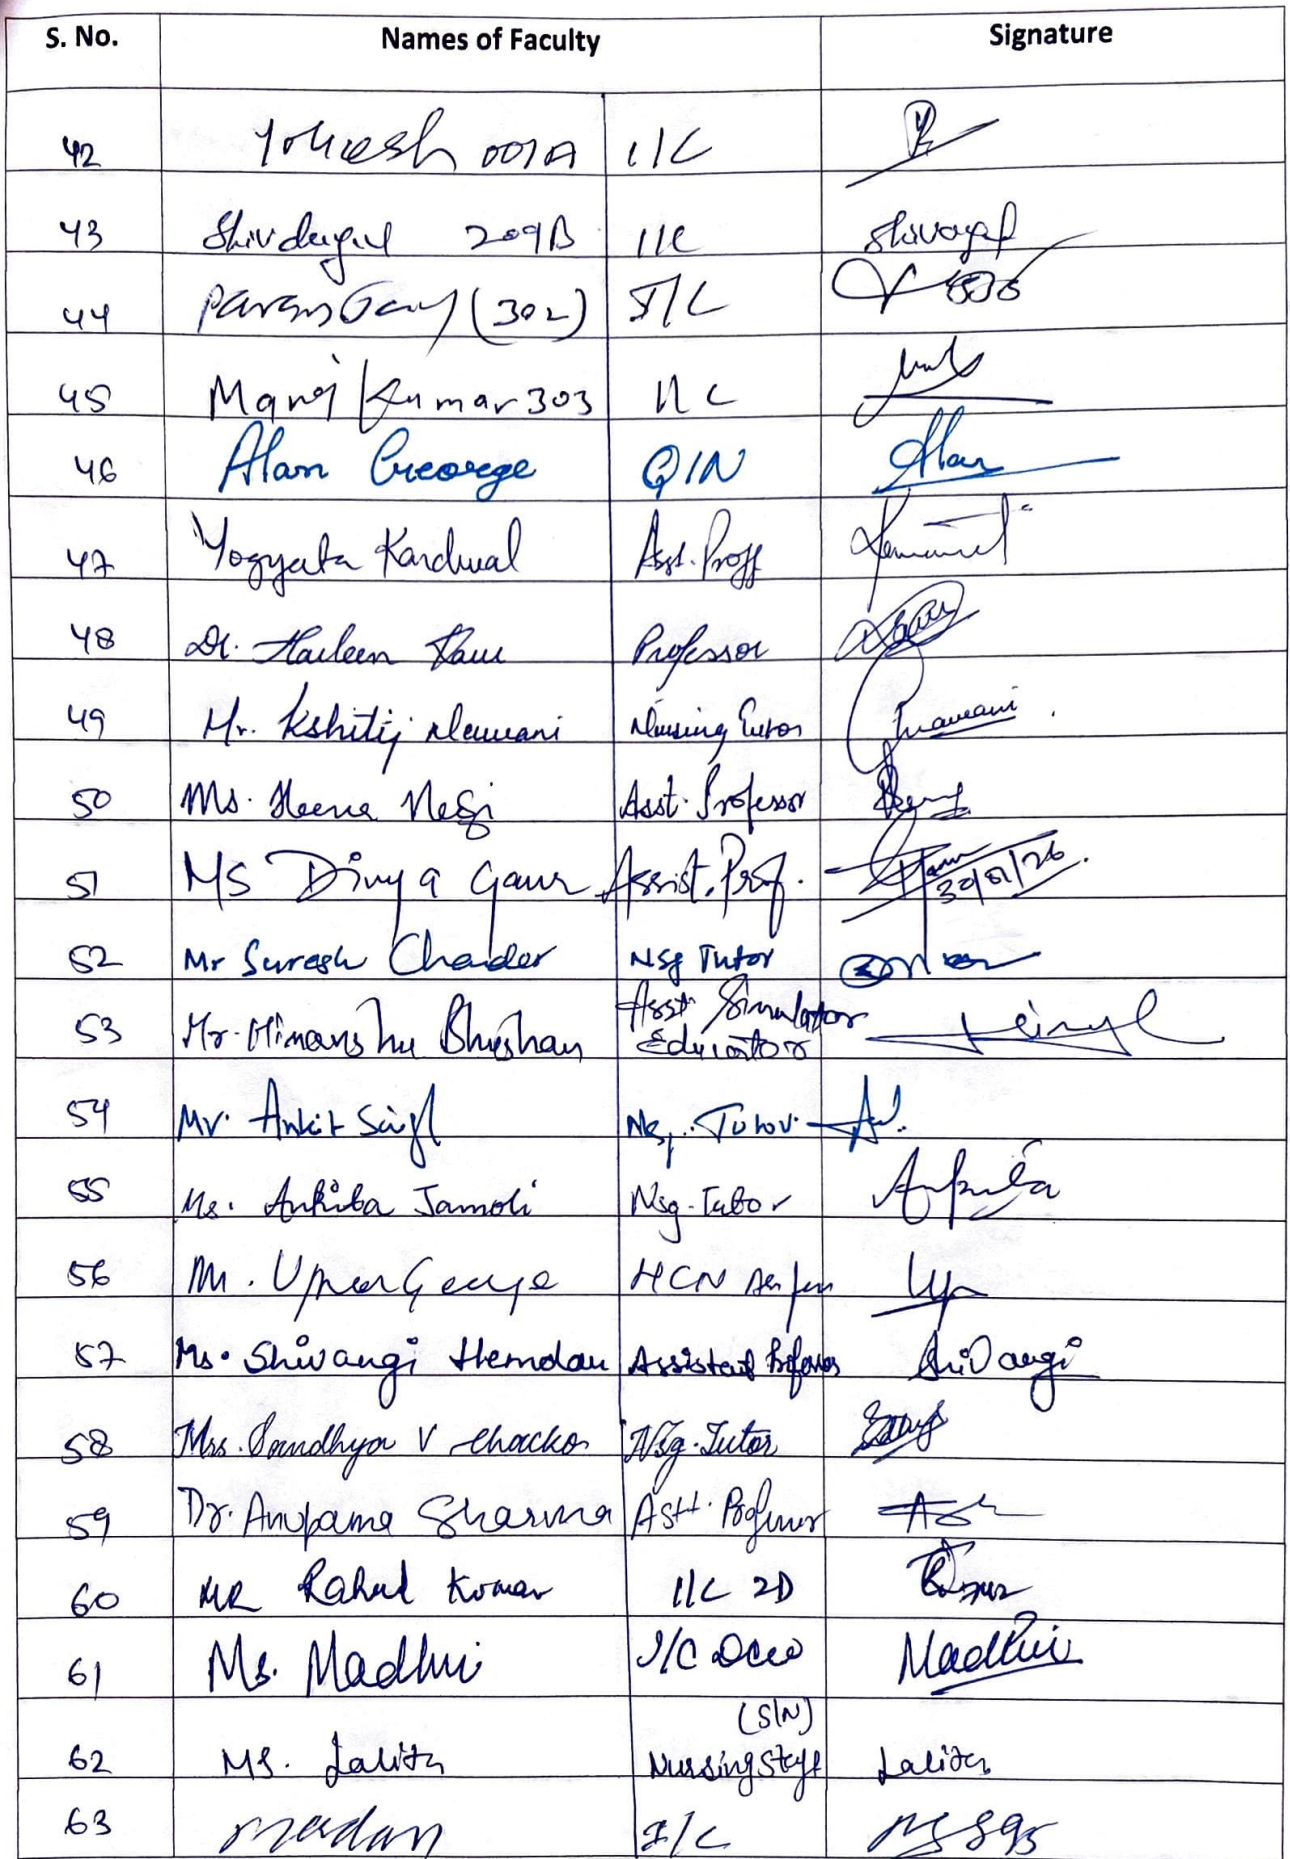 S. No. Names of Faculty Signature
42 Yokesh 001A I/C
43 Shivdayal 209B I/C Shivdayal
44 (302) I/C
45 Manoj Kumar 303 I/C
46 Alan George QIN Alan
47 Yogyata Kandwal Asst. Proff
48 Dr. Harleen Kaur Professor
49 Mr. Kshitij Newani Nursing Tutor
50 Ms. Heena Negi Asst. Professor
51 Ms Divya Gaur Assist. Prof. 30/01/26
52 Mr Suresh Chander Nsg Tutor
53 Mr. Himanshu Bhushan Asst Simulator
Educator
54 Mr. Ankit Singh Nsg. Tutor
55 Ms. Ankita Jamoli Nsg. Tutor Ankita
56 George HCN
57 Ms. Shivangi Hemdan Assistant Professor Shivangi
58 Mrs. Sandhya V Chacko Nsg. Tutor
59 Dr. Anupama Sharma Astt. Professor
60 MR Rahul Kumar I/C 2D
61 Ms. Madhvi I/C Madhvi
(S/N)
62 Ms. Lalita Nursing Staff Lalita
63 Madan I/C